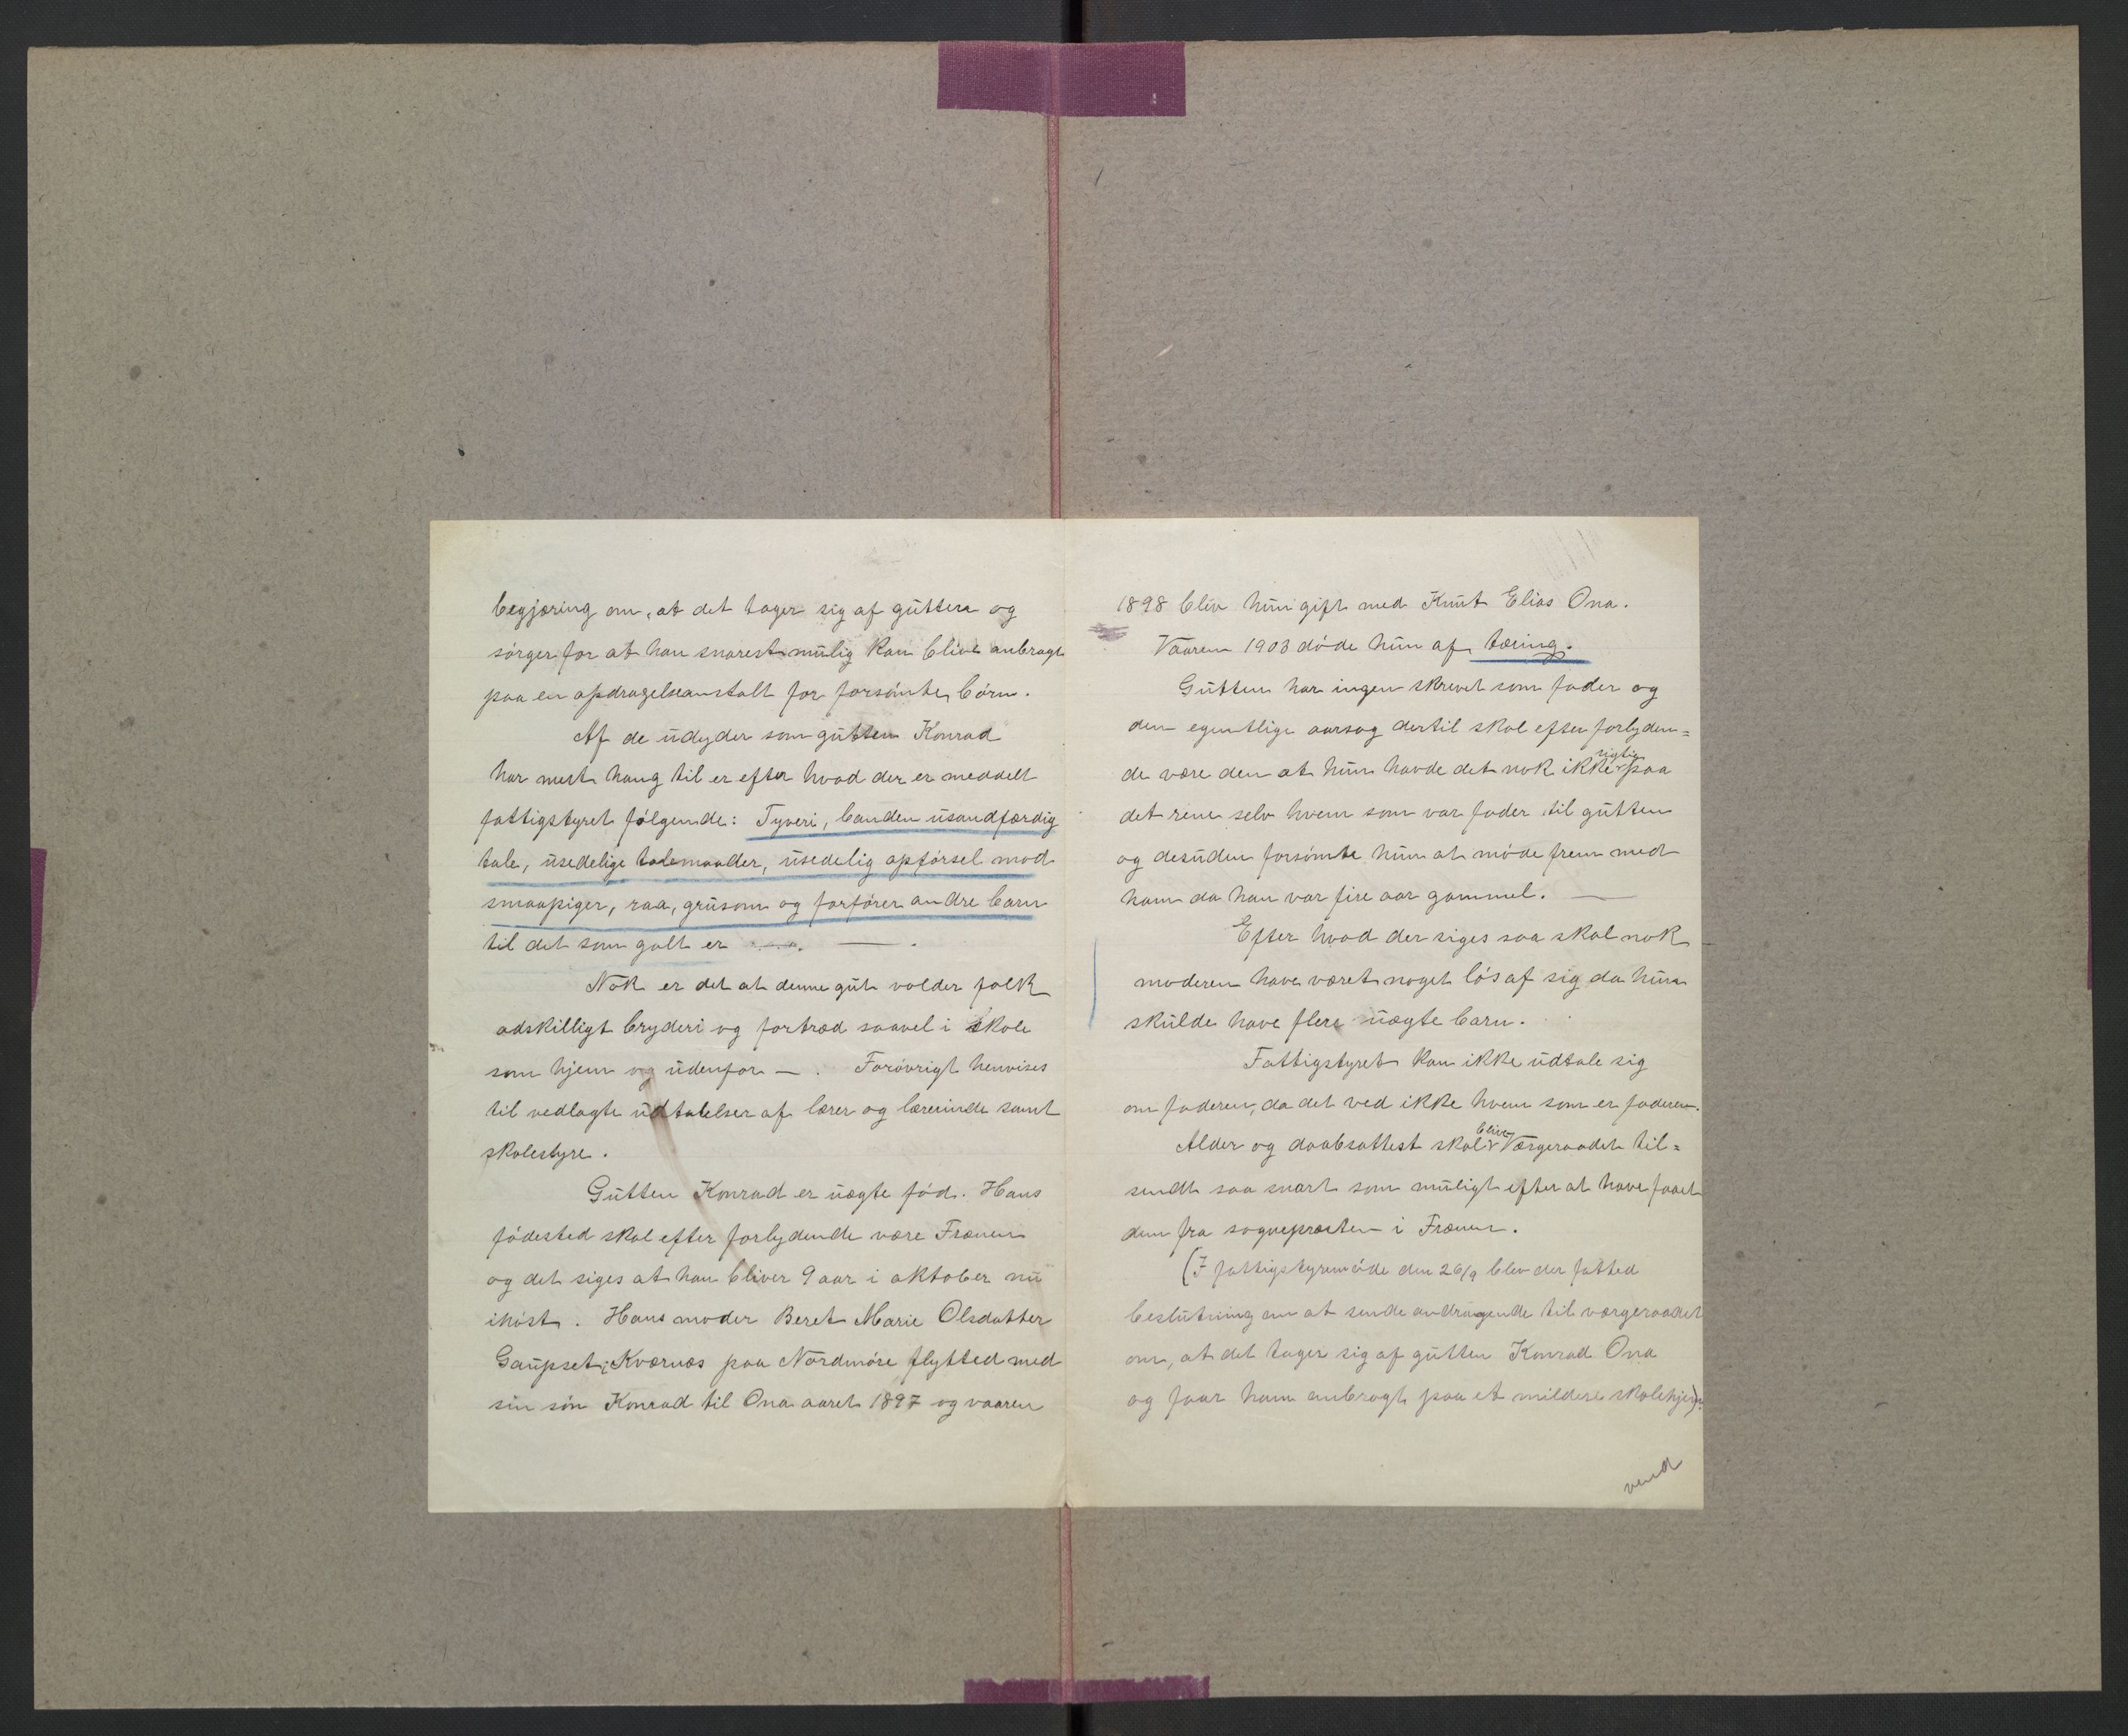 begjæring om, at det tager sig af gutten og
sørger for at han snarest mulig kan blive anbragt
paa en opdragelseanstalt for forsømte børn.
Af de udyder som gutten Konrad
har mest hang til er efter hvad der er meddelt
fattigstyret følgende: Tyveri, banden usandfærdig
tale, usedelige talemaader, usedelig opførsel mod
smaapiger, raa, grusom og forfører andre barn
til det som galt er —.
Nok er det at denne gut volder folk
adskilligt bryderi og fortræd saavel i skole
som hjem og udenfor —. Forøvrigt henvises
til vedlagte udtalelser af lærer og lærerinde samt
skolestyre.
Gutten Konrad er uægte fød. Hans
fødested skal efter forlydende være Frænen
og det siges at han bliver 9 aar i oktober nu
ihøst. Hans moder Beret Marie Olsdatter
Gaupset, Kværnæs paa Nordmøre flytted med
sin søn Konrad til Ona aaret 1897 og vaaren
1898 blev hun gift med Knut Elias Ona.
Vaaren 1903 døde hun af tæring.
Gutten har ingen skrevet som fader og
den egentlige aarsag dertil skal efter forlyden=
de være den at hun havde det nok ikke rigtig paa
det rene selv hvem som var fader til gutten
og desuden forsømte hun at møde frem med
ham da han var fire aar gammel. —
Efter hvad der siges saa skal nok
moderen have været noget løs af sig da hun
skulde have flere uægte barn.
Fattigstyret kan ikke udtale sig
om faderen, da det ved ikke hvem som er faderen.
Alder og daabsattest skal blive Værgeraadet til=
sendt saa snart som muligt efter at have faaet
den fra sognepræsten i Frænen.
(I fattigstyremøde den 26/9 blev der fatted
beslutning om at sende andragende til værgeraadet
om, at det tager sig af gutten Konrad Ona
og faar ham anbragt paa et mildere skolehjem).
vend